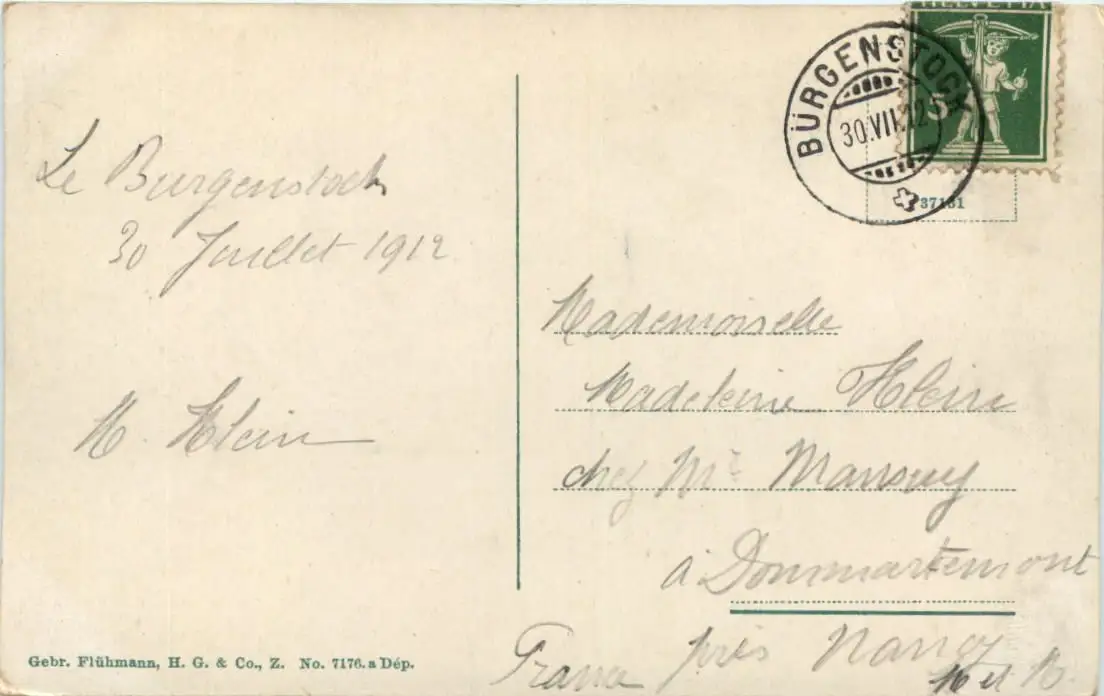 HELVETIA
5
BÜRGENSTOCK
30.VII.12
37131
Le Burgenstock
30 Juillet 1912
M. Klein
Mademoiselle
Madeleine Klein
chez Mr Mansuy
à Dommartemont
près Nancy
France M et M.
Gebr. Flühmann, H. G. & Co., Z. No. 7176.a Dép.